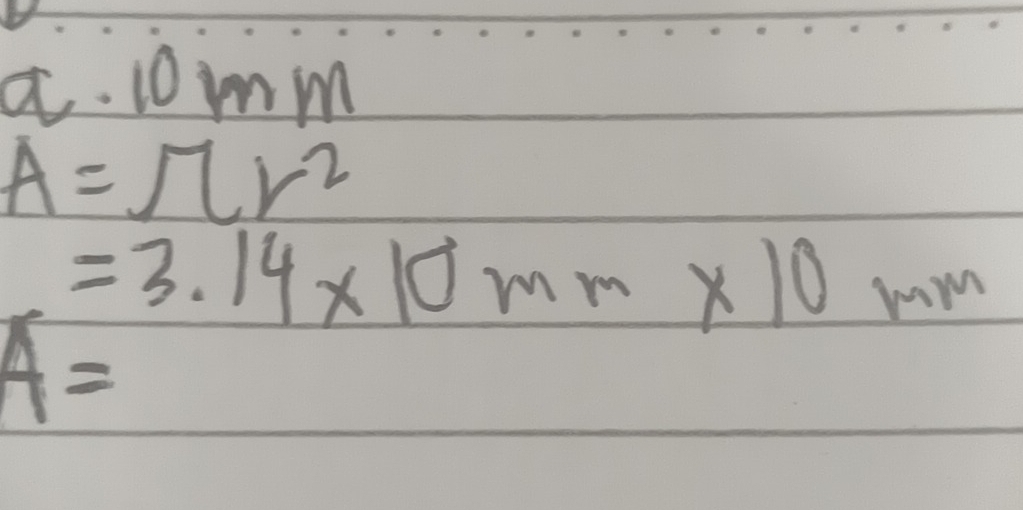 a. 10 mm
A = πr²
= 3.14 x 10 mm x 10 mm
A =